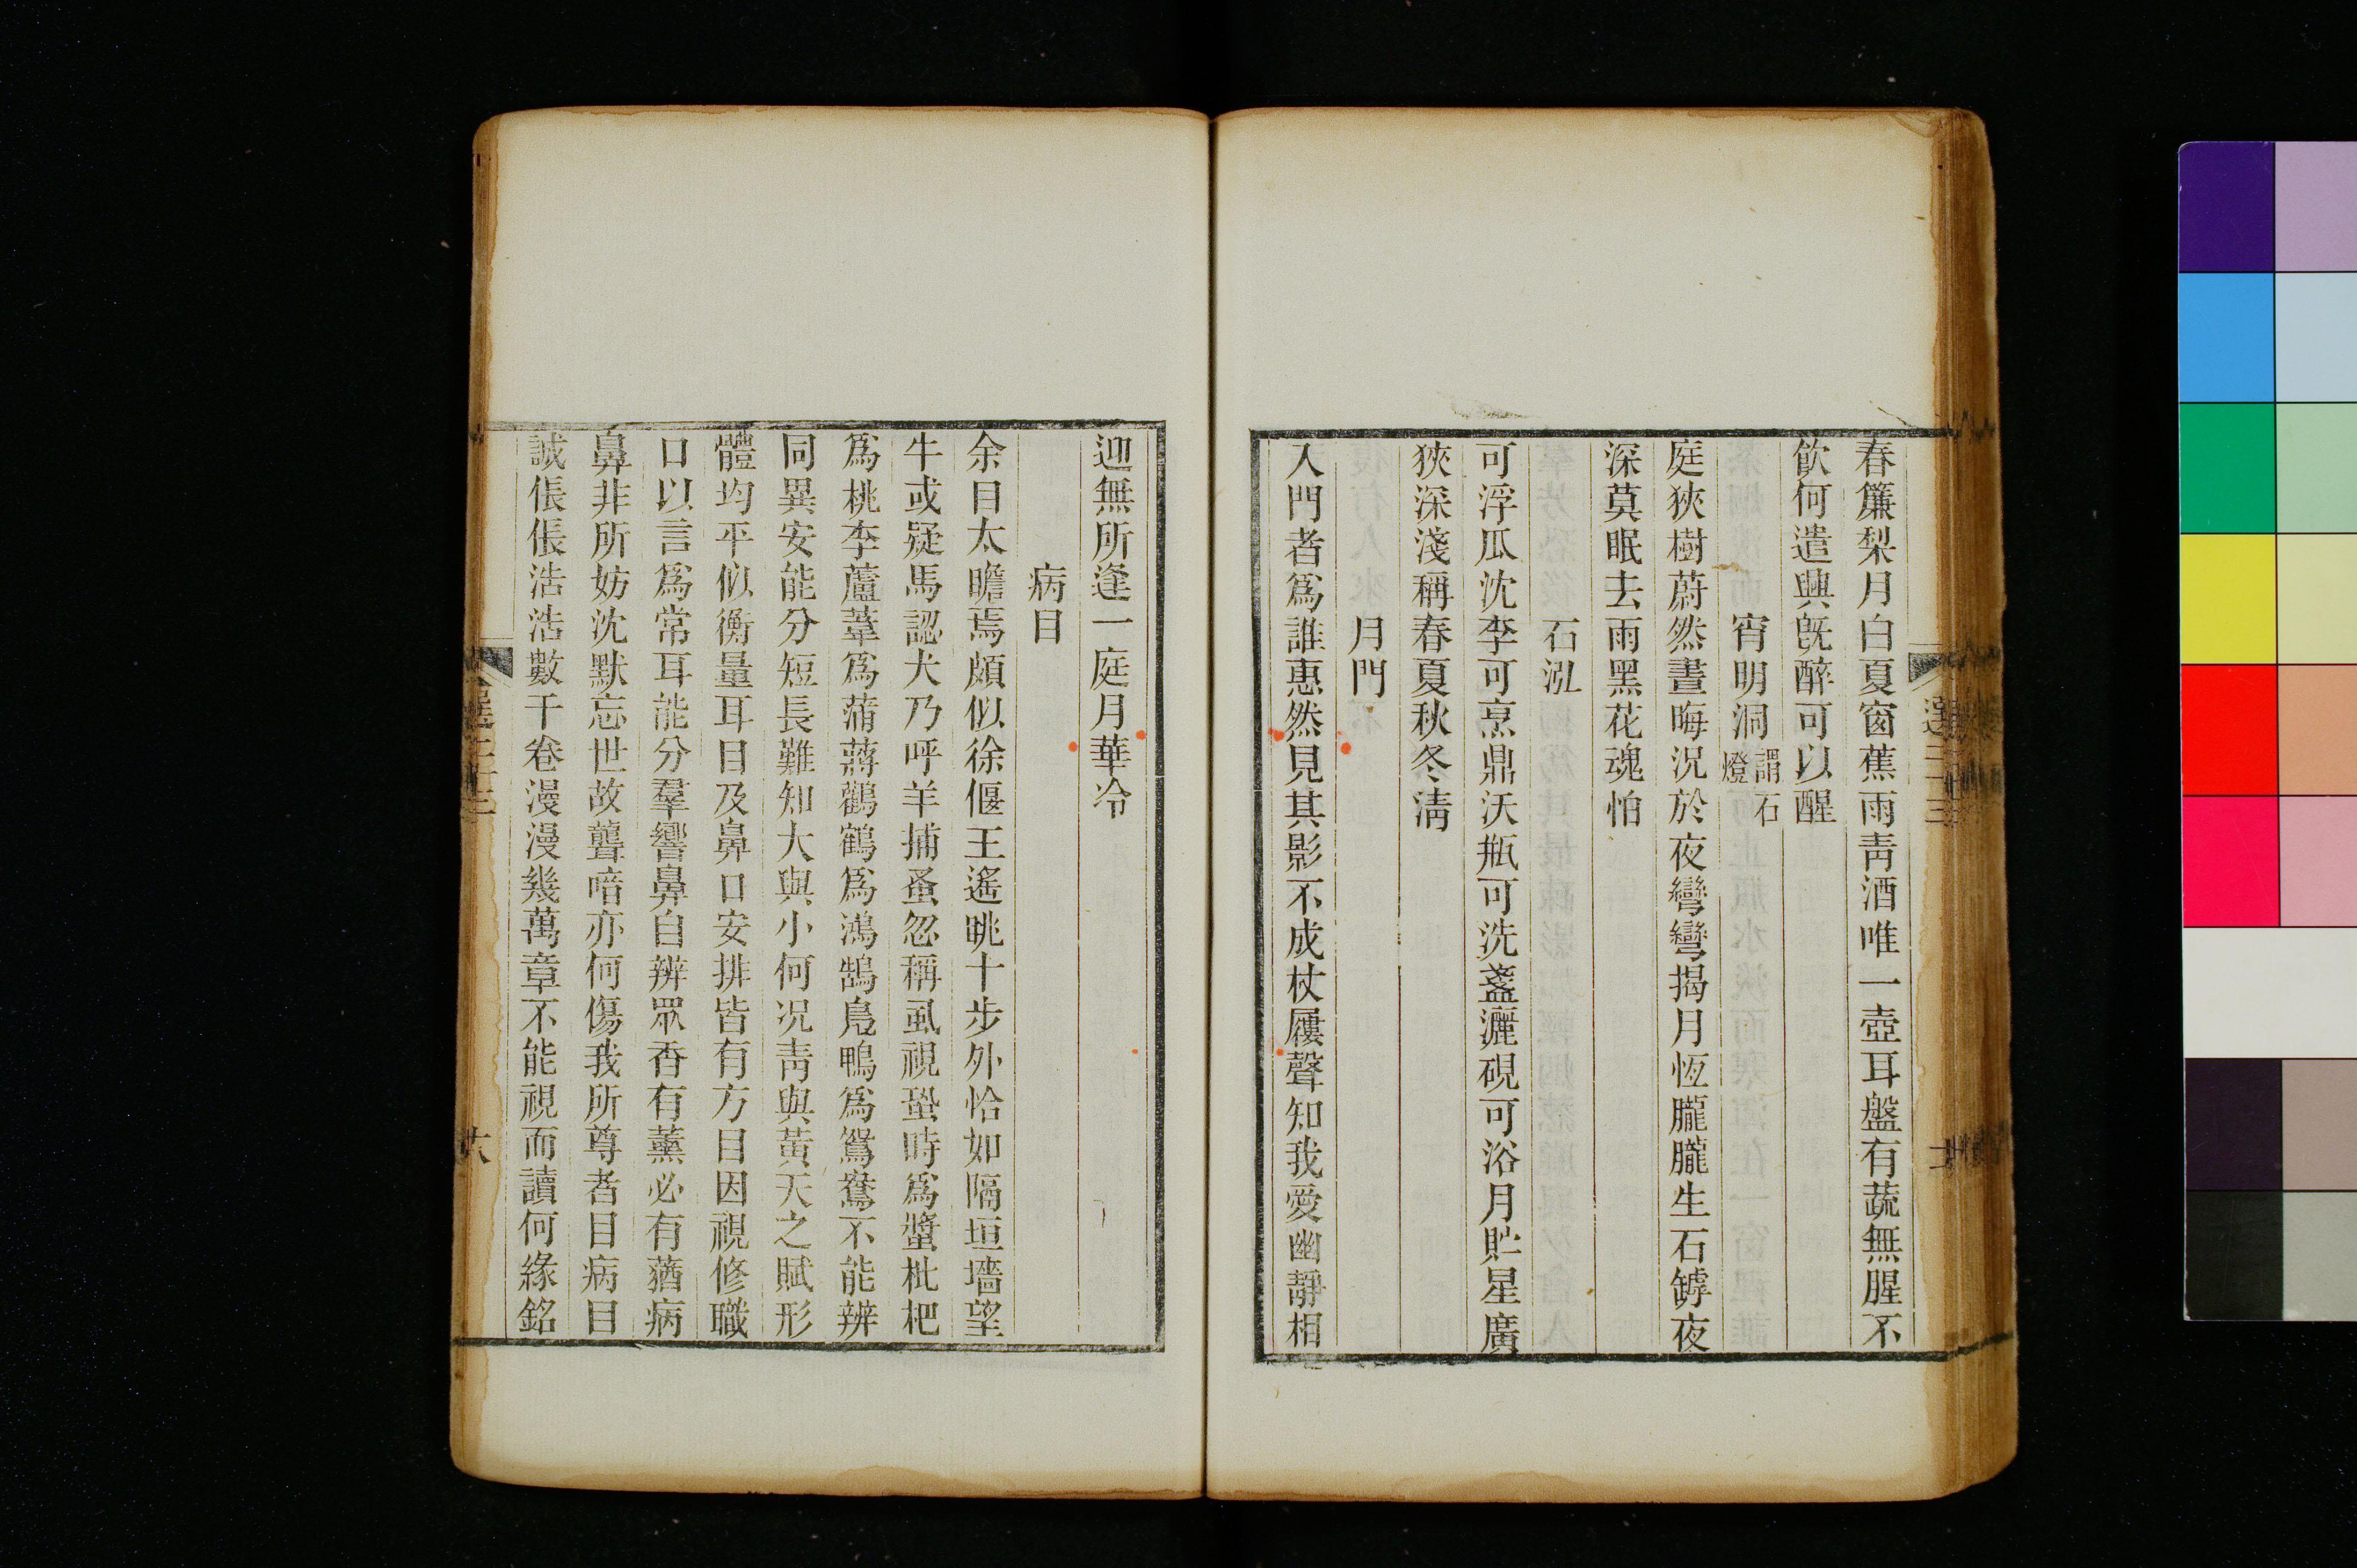 春簾梨月白夏窗蕉雨靑酒唯一壺耳盤有蔬無腥不
飮何遣興旣醉可以醒
宵明洞謂石燈
庭狹樹蔚然晝晦況於夜彎彎揭月恆朧朧生石罅夜
深莫眠去雨黑花魂怕
石泓
可浮瓜沈李可烹鼎沃瓶可洗盞灑硯可浴月貯星廣
狹深淺稱春夏秋冬淸
月門
入門者爲誰惠然見其影不成杖履聲知我愛幽靜相
迎無所逢一庭月華冷
病目
余目太瞻焉頗似徐偃王遙眺十步外恰如隔垣墻望
牛或疑馬認犬乃呼羊捕蚤忽稱虱視蛩時爲螿枇杷
爲桃李蘆葦爲蒲蔣鸛鶴爲鴻鵠鳧鴨爲鴛鴦不能辨
同異安能分短長難知大與小何況靑與黃天之賦形
體均平似衡量耳目及鼻口安排皆有方目因視修職
口以言爲常耳能分羣響鼻自辨眾香有薰必有蕕病
鼻非所妨沈默忘世故聾喑亦何傷我所尊者目病目
誠倀倀浩浩數千卷漫漫幾萬章不能視而讀何緣銘